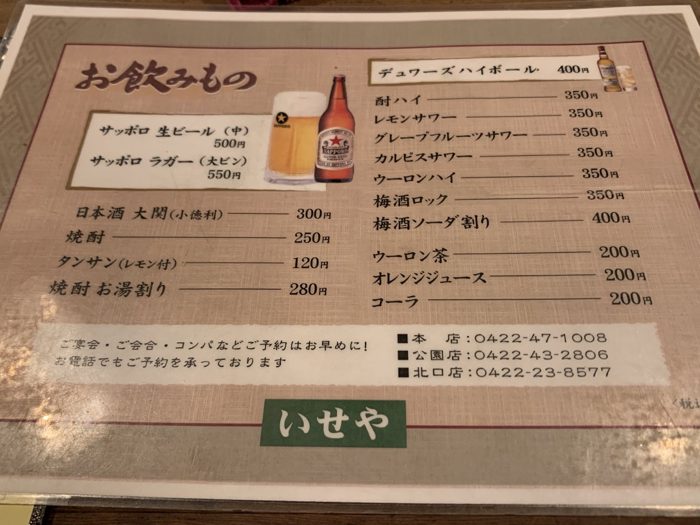 お飲みもの
サッポロ 生ビール（中）
500円
サッポロ ラガー（大ビン）
550円
日本酒 大関（小徳利） 300円
焼酎 250円
タンサン（レモン付） 120円
焼酎 お湯割り 280円
デュワーズ ハイボール 400円
酎ハイ 350円
レモンサワー 350円
グレープフルーツサワー 350円
カルピスサワー 350円
ウーロンハイ 350円
梅酒ロック 350円
梅酒ソーダ割り 400円
ウーロン茶 200円
オレンジジュース 200円
コーラ 200円
ご宴会・ご会合・コンパなどご予約はお早めに!
お電話でもご予約を承っております
■本 店：0422-47-1008
■公園店：0422-43-2806
■北口店：0422-23-8577
いせや